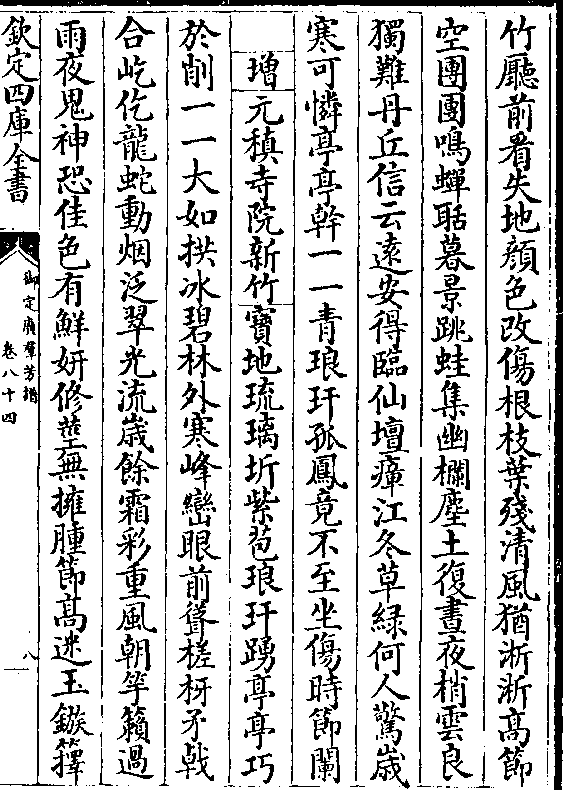 竹廳前看失地顔色改傷根枝葉殘清風猶淅淅髙節
空團團鳴蟬聒暮景跳蛙集幽欄塵土復晝夜梢雲良
獨難丹丘信云遠安得臨仙壇瘴江冬草綠何人驚歲
寒可憐亭亭幹一一青琅玕孤鳳竟不至坐傷時節闌
增 元稹寺院新竹 寶地琉璃坼紫苞琅玕踴亭亭巧
於削一一大如拱冰碧林外寒峰巒眼前聳槎枒矛戟
合屹仡龍蛇動烟泛翠光流歲餘霜彩重風朝竽籟過
雨夜鬼神恐佳色有鮮妍修莖無擁腫節髙迷玉鏃籜
欽定四庫全書
御定廣羣芳譜
卷八十四
八